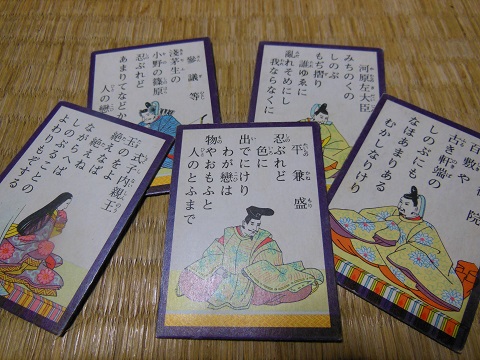 參議等
淺茅生の
小野の篠原
忍ぶれど
あまりてなどか
人の戀
河原左大臣
みちのくの
しのぶ
もぢ摺り
誰ゆゑに
亂れそめにし
我ならなくに
式子内親王
玉のをよ
絶えなば
絶えね
ながらへば
しのぶることの
よわりもぞする
平兼盛
忍ぶれど
色に
出でにけり
わが戀は
物やおもふと
人のとふまで
院
百敷や
古き軒端の
しのぶにも
なほあまりある
むかしなりけり